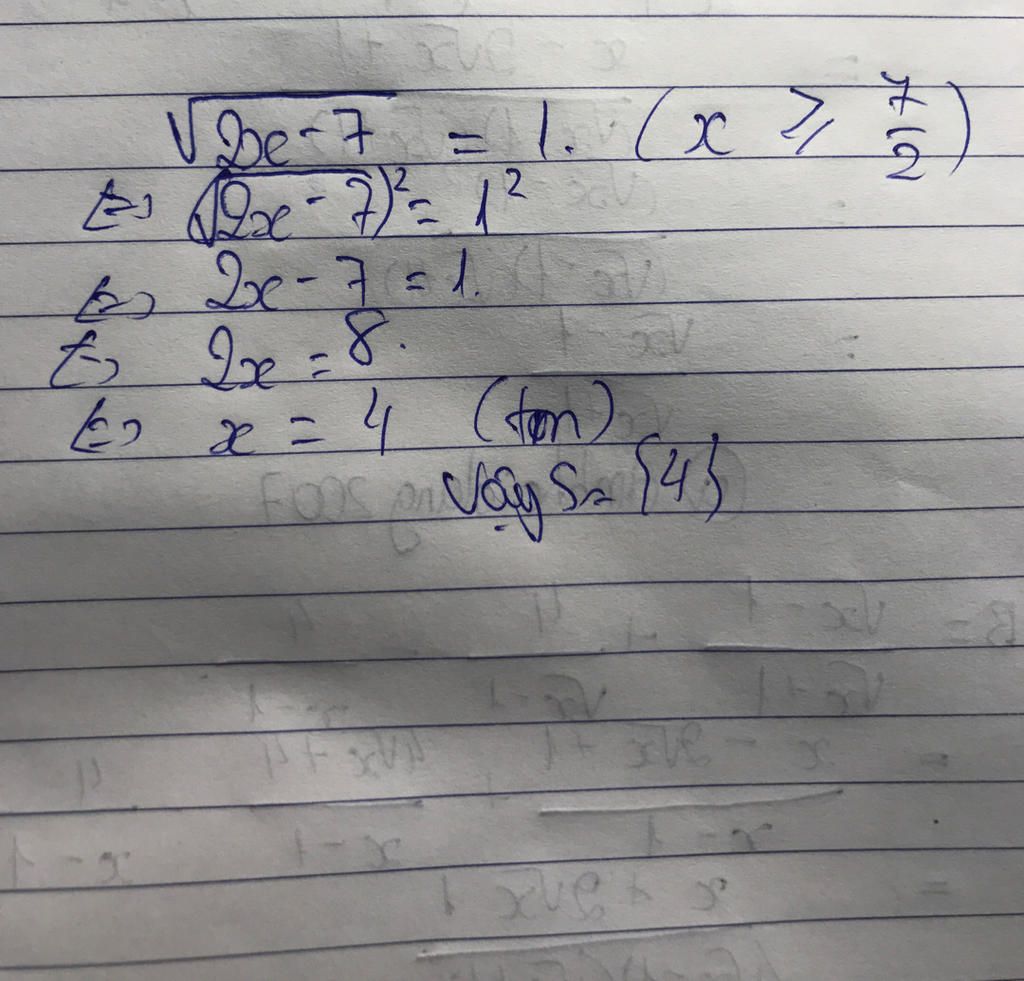 √2x-7 = 1. (x ≥ 7/2)
<=> (√2x-7)² = 1²
<=> 2x-7 = 1.
<=> 2x = 8.
<=> x = 4 (tm)
Vậy S = {4}